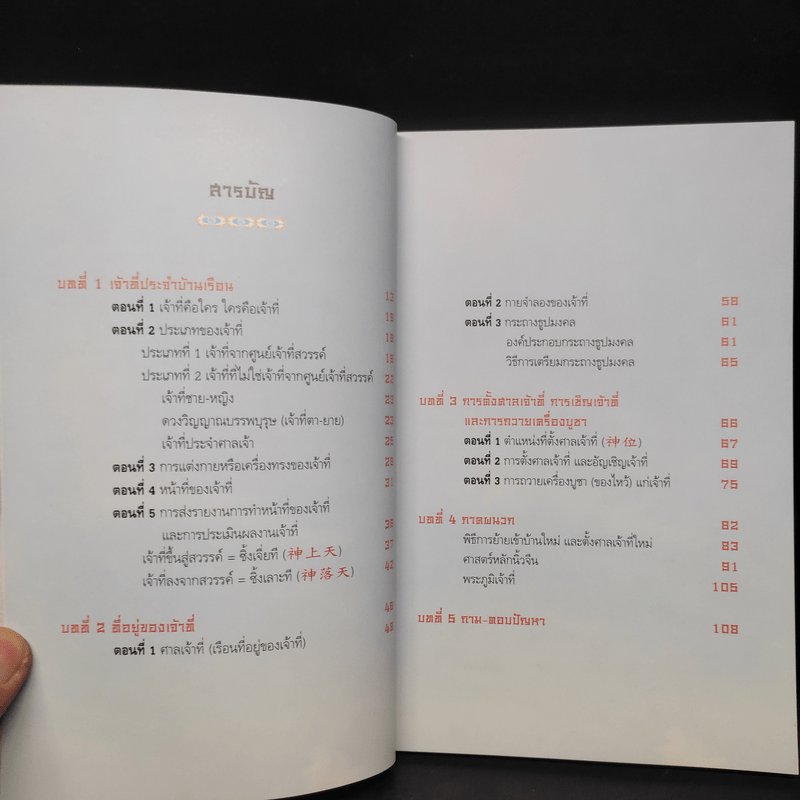 สารบัญ
บทที่ 1 เจ้าที่ประจำบ้านเรือน 12
ตอนที่ 1 เจ้าที่คือใคร ใครคือเจ้าที่
ตอนที่ 2 ประเภทของเจ้าที่
ประเภทที่ 1 เจ้าที่จากศูนย์เจ้าที่สวรรค์
ประเภทที่ 2 เจ้าที่ที่ไม่ใช่เจ้าที่จากศูนย์เจ้าที่สวรรค์ 22
เจ้าที่ชาย-หญิง 23
ดวงวิญญาณบรรพบุรุษ (เจ้าที่ตา-ยาย) 23
เจ้าที่ประจำศาลเจ้า 25
ตอนที่ 3 การแต่งกายหรือเครื่องทรงของเจ้าที่ 29
ตอนที่ 4 หน้าที่ของเจ้าที่ 31
ตอนที่ 5 การส่งรายงานการทำหน้าที่ของเจ้าที่
และการประเมินผลงานเจ้าที่ 36
เจ้าที่ขึ้นสู่สวรรค์ = ซิ้งเจี่ยที (神上天) 37
เจ้าที่ลงจากสวรรค์ = ซิ้งเลาะที (神落天) 42
บทที่ 2 ที่อยู่ของเจ้าที่
ตอนที่ 1 ศาลเจ้าที่ (เรือนที่อยู่ของเจ้าที่)
ตอนที่ 2 กายจำลองของเจ้าที่ 58
ตอนที่ 3 กระถางธูปมงคล 61
องค์ประกอบกระถางธูปมงคล 61
วิธีการเตรียมกระถางธูปมงคล 65
บทที่ 3 การตั้งศาลเจ้าที่ การเชิญเจ้าที่
และการถวายเครื่องบูชา 66
ตอนที่ 1 ตำแหน่งที่ตั้งศาลเจ้าที่ (神位) 67
ตอนที่ 2 การตั้งศาลเจ้าที่ และอัญเชิญเจ้าที่ 69
ตอนที่ 3 การถวายเครื่องบูชา (ของไหว้) แก่เจ้าที่ 75
บทที่ 4 ภาคผนวก 82
พิธีการย้ายเข้าบ้านใหม่ และตั้งศาลเจ้าที่ใหม่ 83
ศาสตร์หลักนิ้วจีน 91
พระภูมิเจ้าที่ 105
บทที่ 5 ถาม-ตอบปัญหา 108